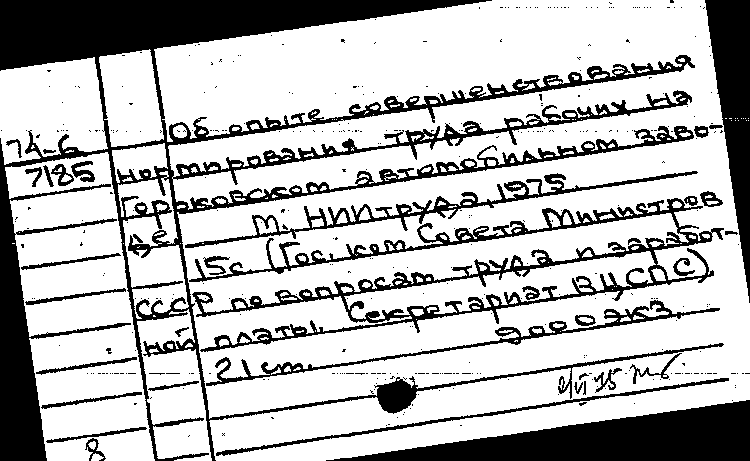 Об опыте совершенствования
74-6
7185
нормирования труда рабочих на
Горьковском автомобильном заво-
де.
М., НИИтруда, 1975.
15с. (Гос. ком. Совета Министров
СССР по вопросам труда и заработ-
ной платы. Секретариат ВЦСПС).
21 cm.
9000экз.
8